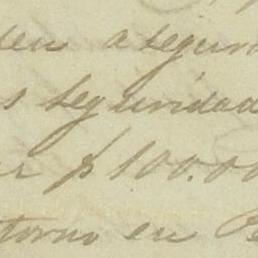 den asegura
s seguridad
ar $100.00
torno en B